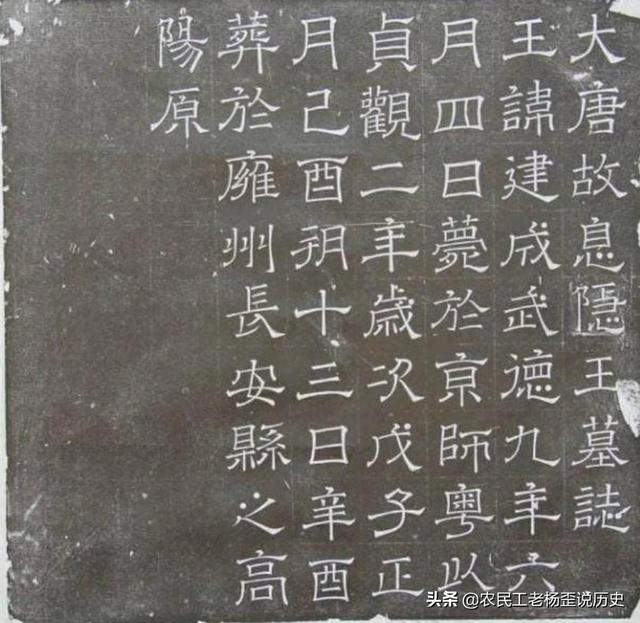 大唐故息隱王墓誌
王諱建成武德九年六
月四日薨於京師粵以
貞觀二年歲次戊子正
月己酉朔十三日辛酉
葬於雍州長安縣之高
陽原
头条 @农民工老杨歪说历史